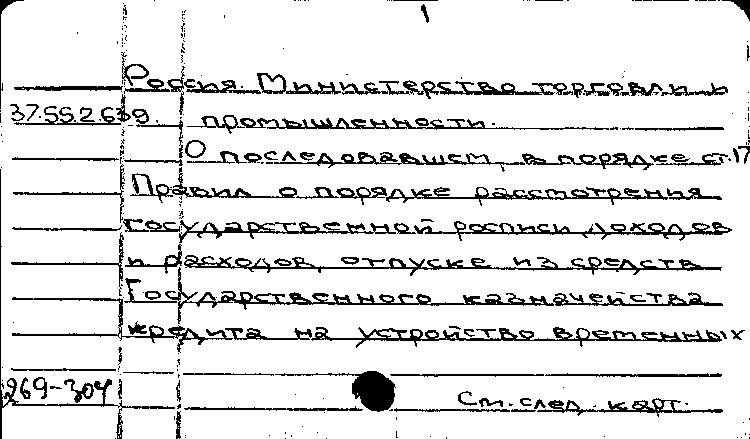 1
Россия. Министерство торговли и
37.55.2.639. промышленности.
О последовавшем, в порядке ст.17
Правил о порядке рассмотрения
государственной росписи доходов
и расходов, отпуске из средств
Государственного казначейства
кредита на устройство временных
269-304
См. след. карт.